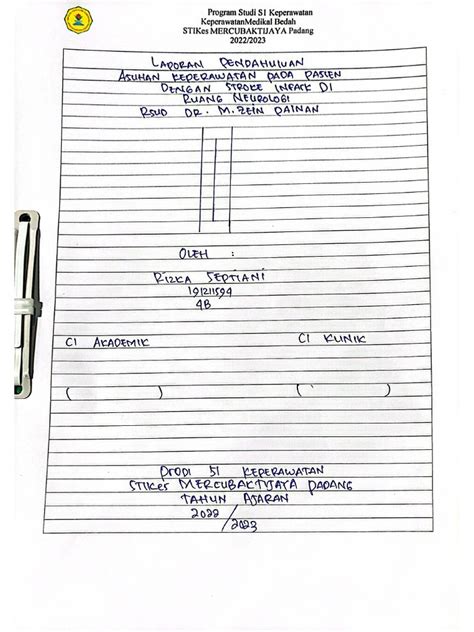 Program Studi S1 Keperawatan
KeperawatanMedikal Bedah
STIKes MERCUBAKTIJAYA Padang
2022/2023
LAPORAN PENDAHULUAN
ASUHAN KEPERAWATAN PADA PASIEN
DENGAN STROKE INFARK DI
RUANG NEUROLOGI
RSUD DR. M. ZEIN PAINAN
OLEH :
RIZKA SEPTIANI
191211594
4B
CI AKADEMIK CI KLINIK
( ) ( )
PRODI S1 KEPERAWATAN
STIKes MERCUBAKTIJAYA PADANG
TAHUN AJARAN
2022
/2023